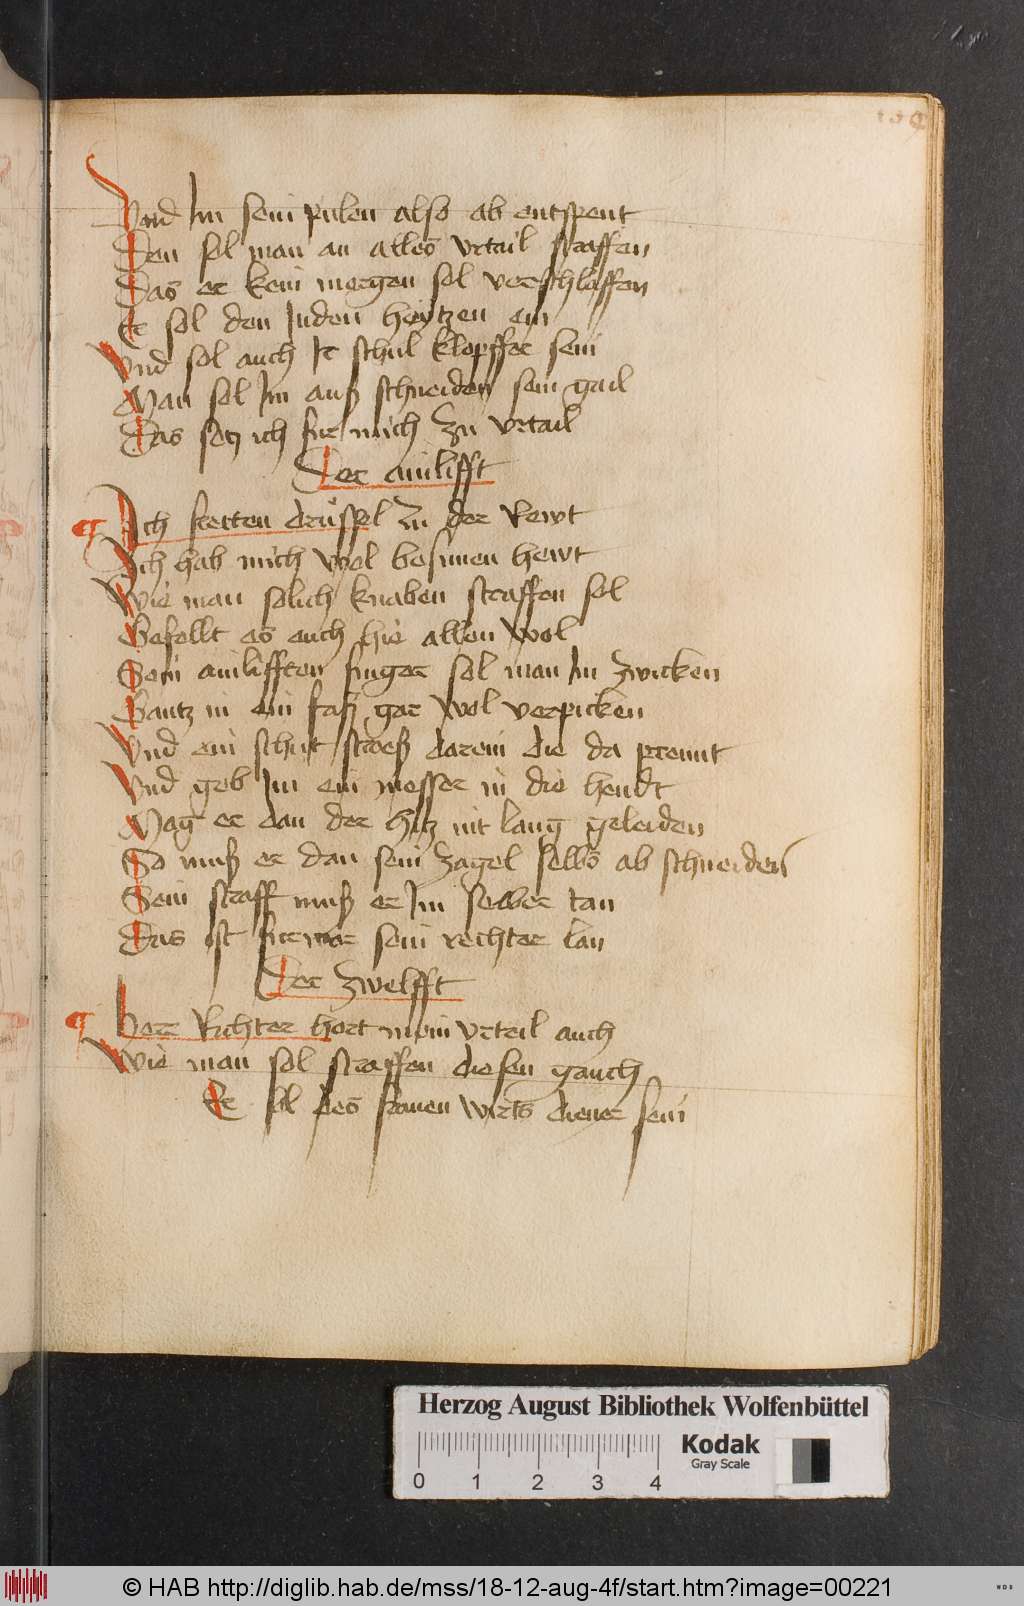 Vnd Im sein pulen also ab entspent
Den sol man an alles vrtail straffen
Das er kein morgen sol verschlaffen
Er sol den Juden heytzen ein
Vnd sol auch Ir schul klopffer sein
Man sol Im auß schneiden sein gail
Das setz ich fur mich zu vrtail
Der ainlifft
Ich fretten drüssel zu der Rewt
Ich hab mich wol besunnen hewt
Wie man solich knaben straffen sol
Gefellt es euch hie allen wol
Sein ainlifften finger sol man Im zwicken
Gantz in ein faß gar wol verpicken
Vnd ein schut stroeß darein die da prennt
Vnd geb Im ein messer in die hendt
Mag er dan der hitz nit lang geleiden
So muß er dan sein zagel selbs ab schneiden
Sein straff muß er Im selber tan
Das ist furwar sein rechter lan
Der zwelfft
Herr Richter hort mein vrteil auch
Wie man sol straffen diesen gauch
Er sol des frauen wirts diener sein
Herzog August Bibliothek Wolfenbüttel
0 1 2 3 4
Kodak
Gray Scale
© HAB http://diglib.hab.de/mss/18-12-aug-4f/start.htm?image=00221